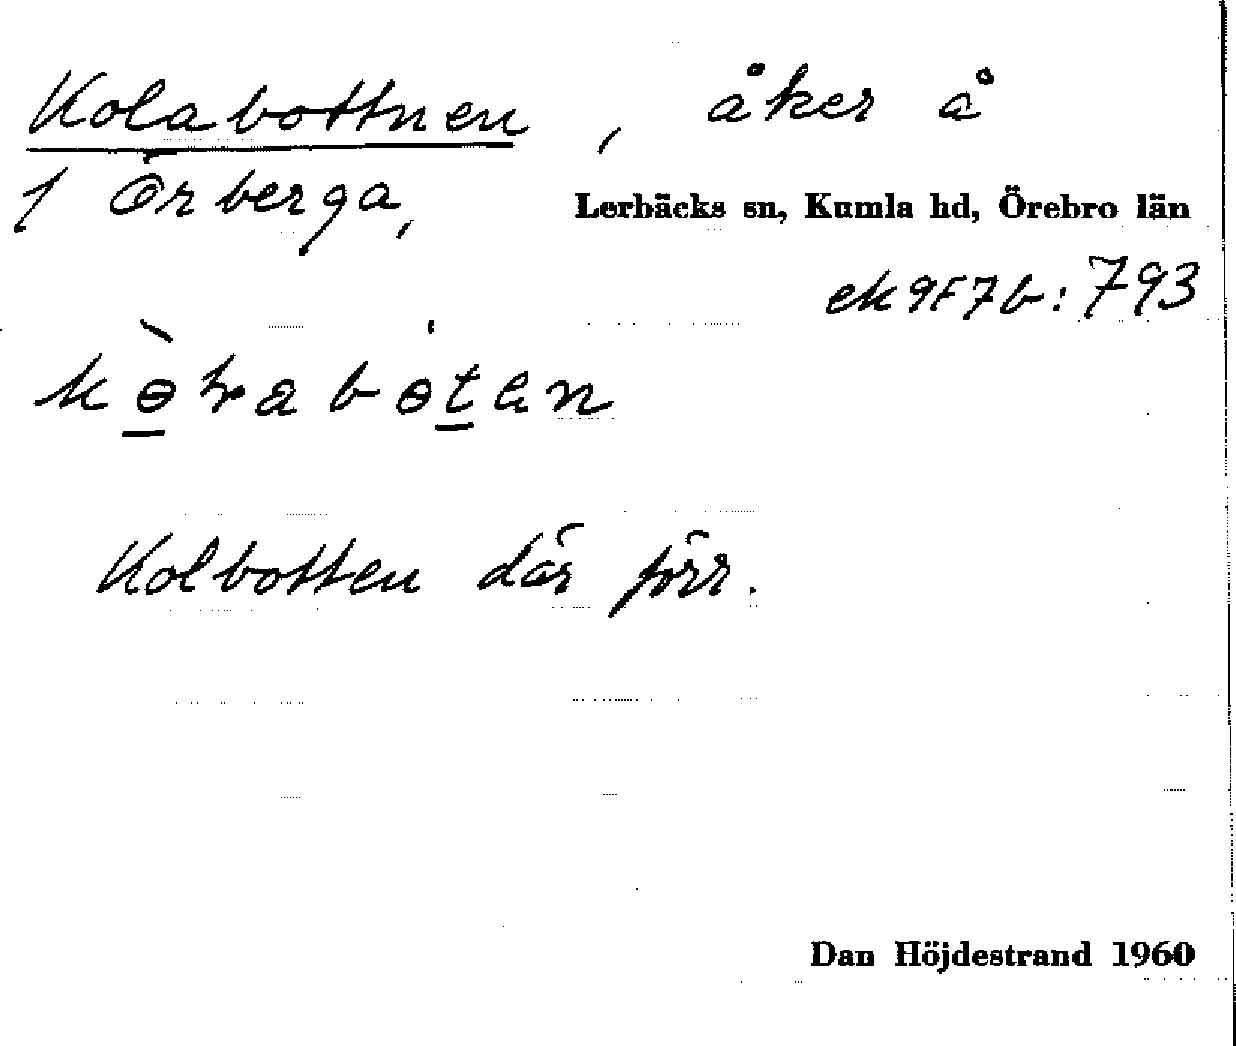 Kolabottnen, åker å
1 Örberga,
Lerbäcks sn, Kumla hd, Örebro län
ek 9F7b: 793
Kolbotten där förr.
Dan Höjdestrand 1960